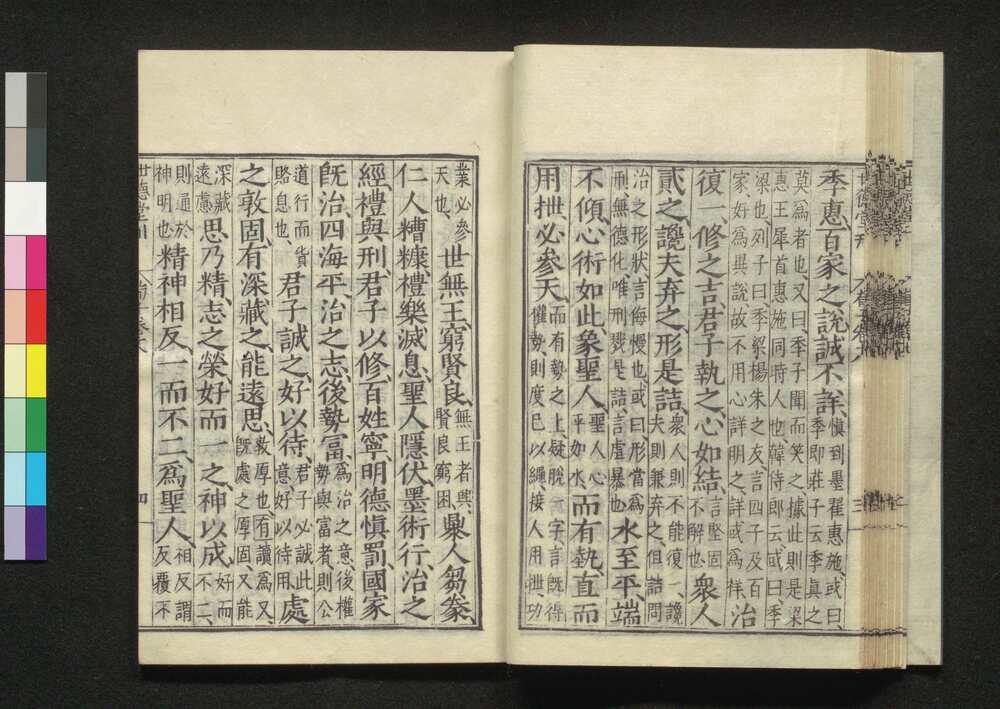 季惠百家之說誠不詳、慎到墨翟惠施、或曰、
季即莊子云季真之
莫爲者也、又曰、季子聞而笑之據此則是梁
惠王犀首惠施同時人也韓侍郎云或曰季
梁也列子曰季梁楊朱之友言四子及百
家好爲異說故不用心詳明之、詳或爲祥、治
復一、修之吉、君子執之、心如結、言堅固
不解也、衆人
貳之、讒夫弃之形是詰、衆人則不能復一、讒
夫則兼弃之、但詰問
治之形狀、言侮慢也、或曰形當爲
刑無德化唯刑戮是詰、言虐暴也、水至平、端
不傾、心術如此、象聖人、聖人心
平如水、而有埶直而
用抴、必參天、而有勢之上、疑脫一字言旣得
權勢、則度已以繩、接人用抴、功
業必參
天也、世無王、窮賢良、無王者興、
賢良窮困、暴人芻豢、
仁人糟糠、禮樂滅息、聖人隱伏、墨術行、治之
經、禮與刑、君子以修、百姓寧、明德慎罰、國家
旣治、四海平、治之志、後勢富、爲治之意、後權
勢與富者、則公
道行而貨
賂息也、君子誠之、好以待、君子必誠此
意好以待用、處
之敦固、有深藏之、能遠思、敦厚也、有讀爲又、
旣處之厚固、又能
深藏
遠慮、思乃精、志之榮、好而一之、神以成、好而
不二、
則通於
神明也精神相反、一而不二、爲聖人、相反謂
反覆不
世德堂刊